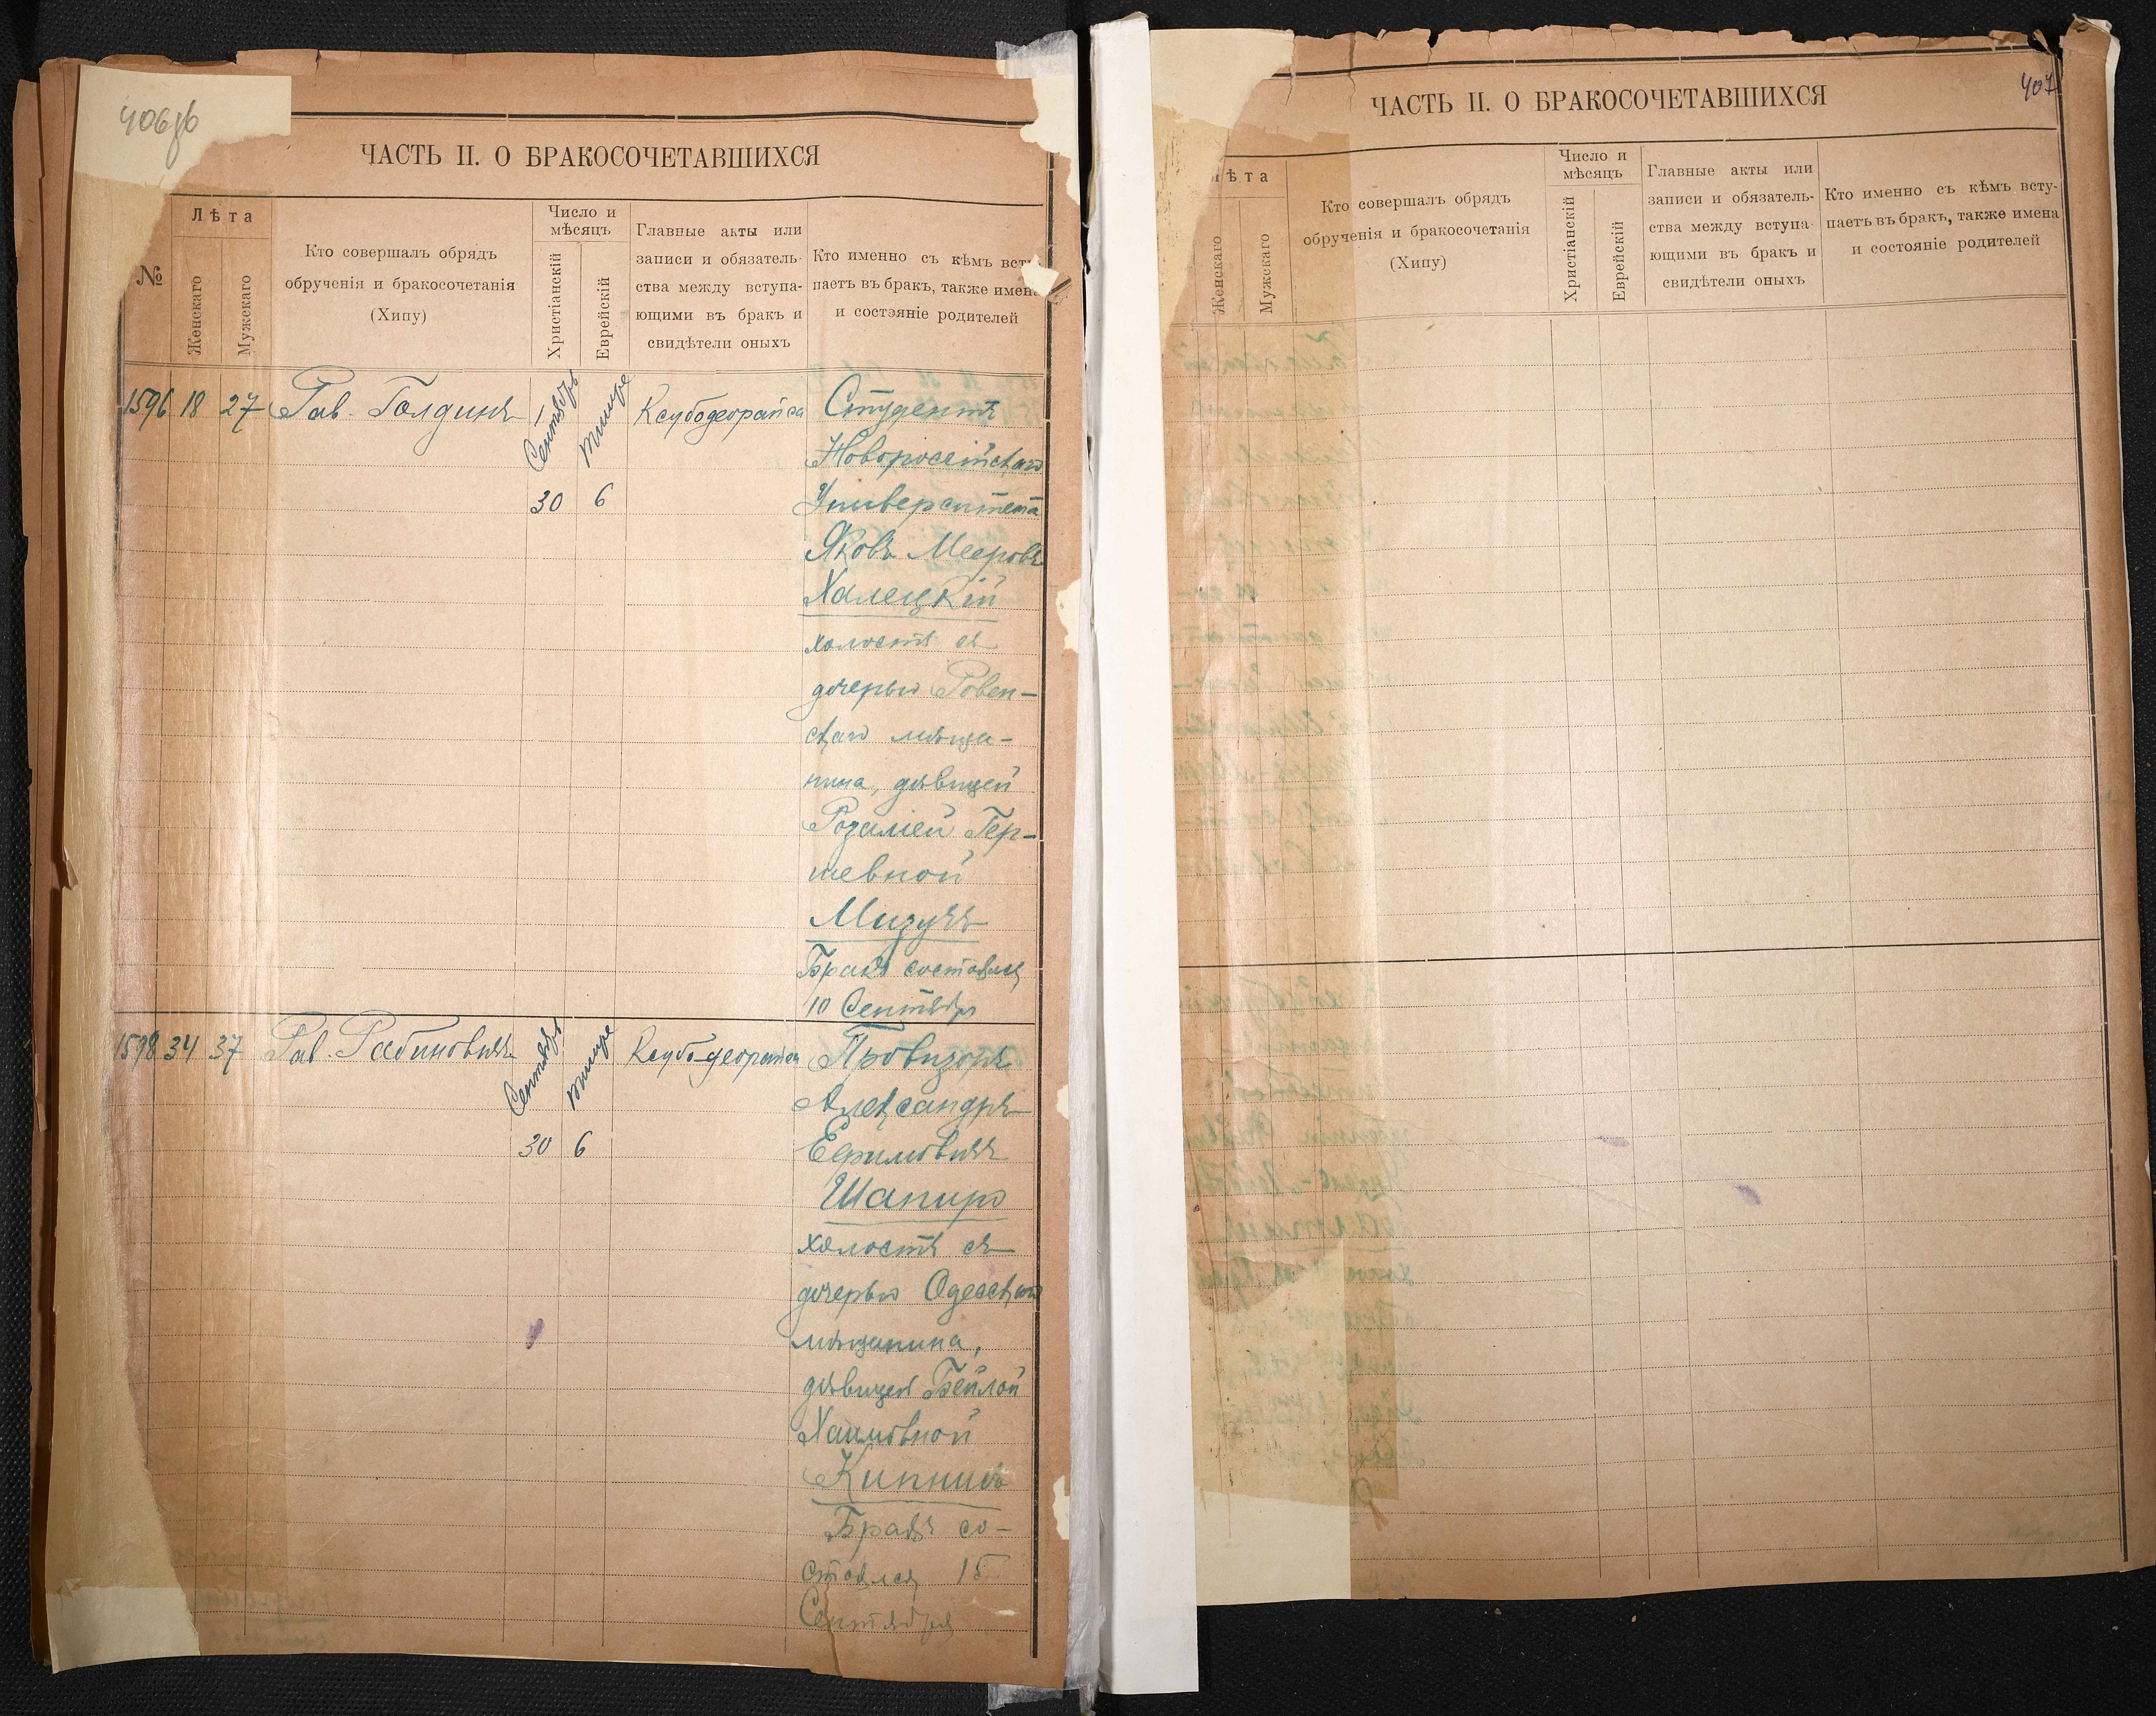 406об
ЧАСТЬ II. О БРАКОСОЧЕТАВШИХСЯ
№
Лѣта
Женскаго
Мужскаго
Кто совершалъ обрядъ
обрученія и бракосочетанія
(Хипу)
Число и
мѣсяцъ
Христіанскій
Еврейскій
Главные акты или
записи и обязатель-
ства между вступа-
ющими въ бракъ и
свидѣтели оныхъ
Кто именно съ кѣмъ всту
паетъ въ бракъ, также имена
и состояніе родителей
1596 18 27 Рав. Голдинъ
1
Сентябрь
Тишре
30 6
Студентъ
Новоросейскаго
Университета
Яковъ Мееровъ
Халецкій
холостъ съ
дочерью Ровен-
скаго мѣща-
нина, дѣвицей
Розаліей Гер-
шевной
Мизучъ
Бракъ состоялся
10 Сентябр
1598 34 37 Рав. Рабиновичъ
Сентябрь
Тишре
30 6
Провизоръ
Александръ
Ефимовичъ
Шапиро
холостъ съ
дочерью Одесскаго
мѣщанина,
дѣвицей Бейлой
Хаимовной
Кипнисъ
Бракъ со-
стоялся 15
Сентября
407
ЧАСТЬ II. О БРАКОСОЧЕТАВШИХСЯ
ѣта
Женскаго
Мужскаго
Кто совершалъ обрядъ
обрученія и бракосочетанія
(Хипу)
Число и
мѣсяцъ
Христіанскій
Еврейскій
Главные акты или
записи и обязатель-
ства между вступа-
ющими въ бракъ и
свидѣтели оныхъ
Кто именно съ кѣмъ всту-
паетъ въ бракъ, также имена
и состояніе родителей